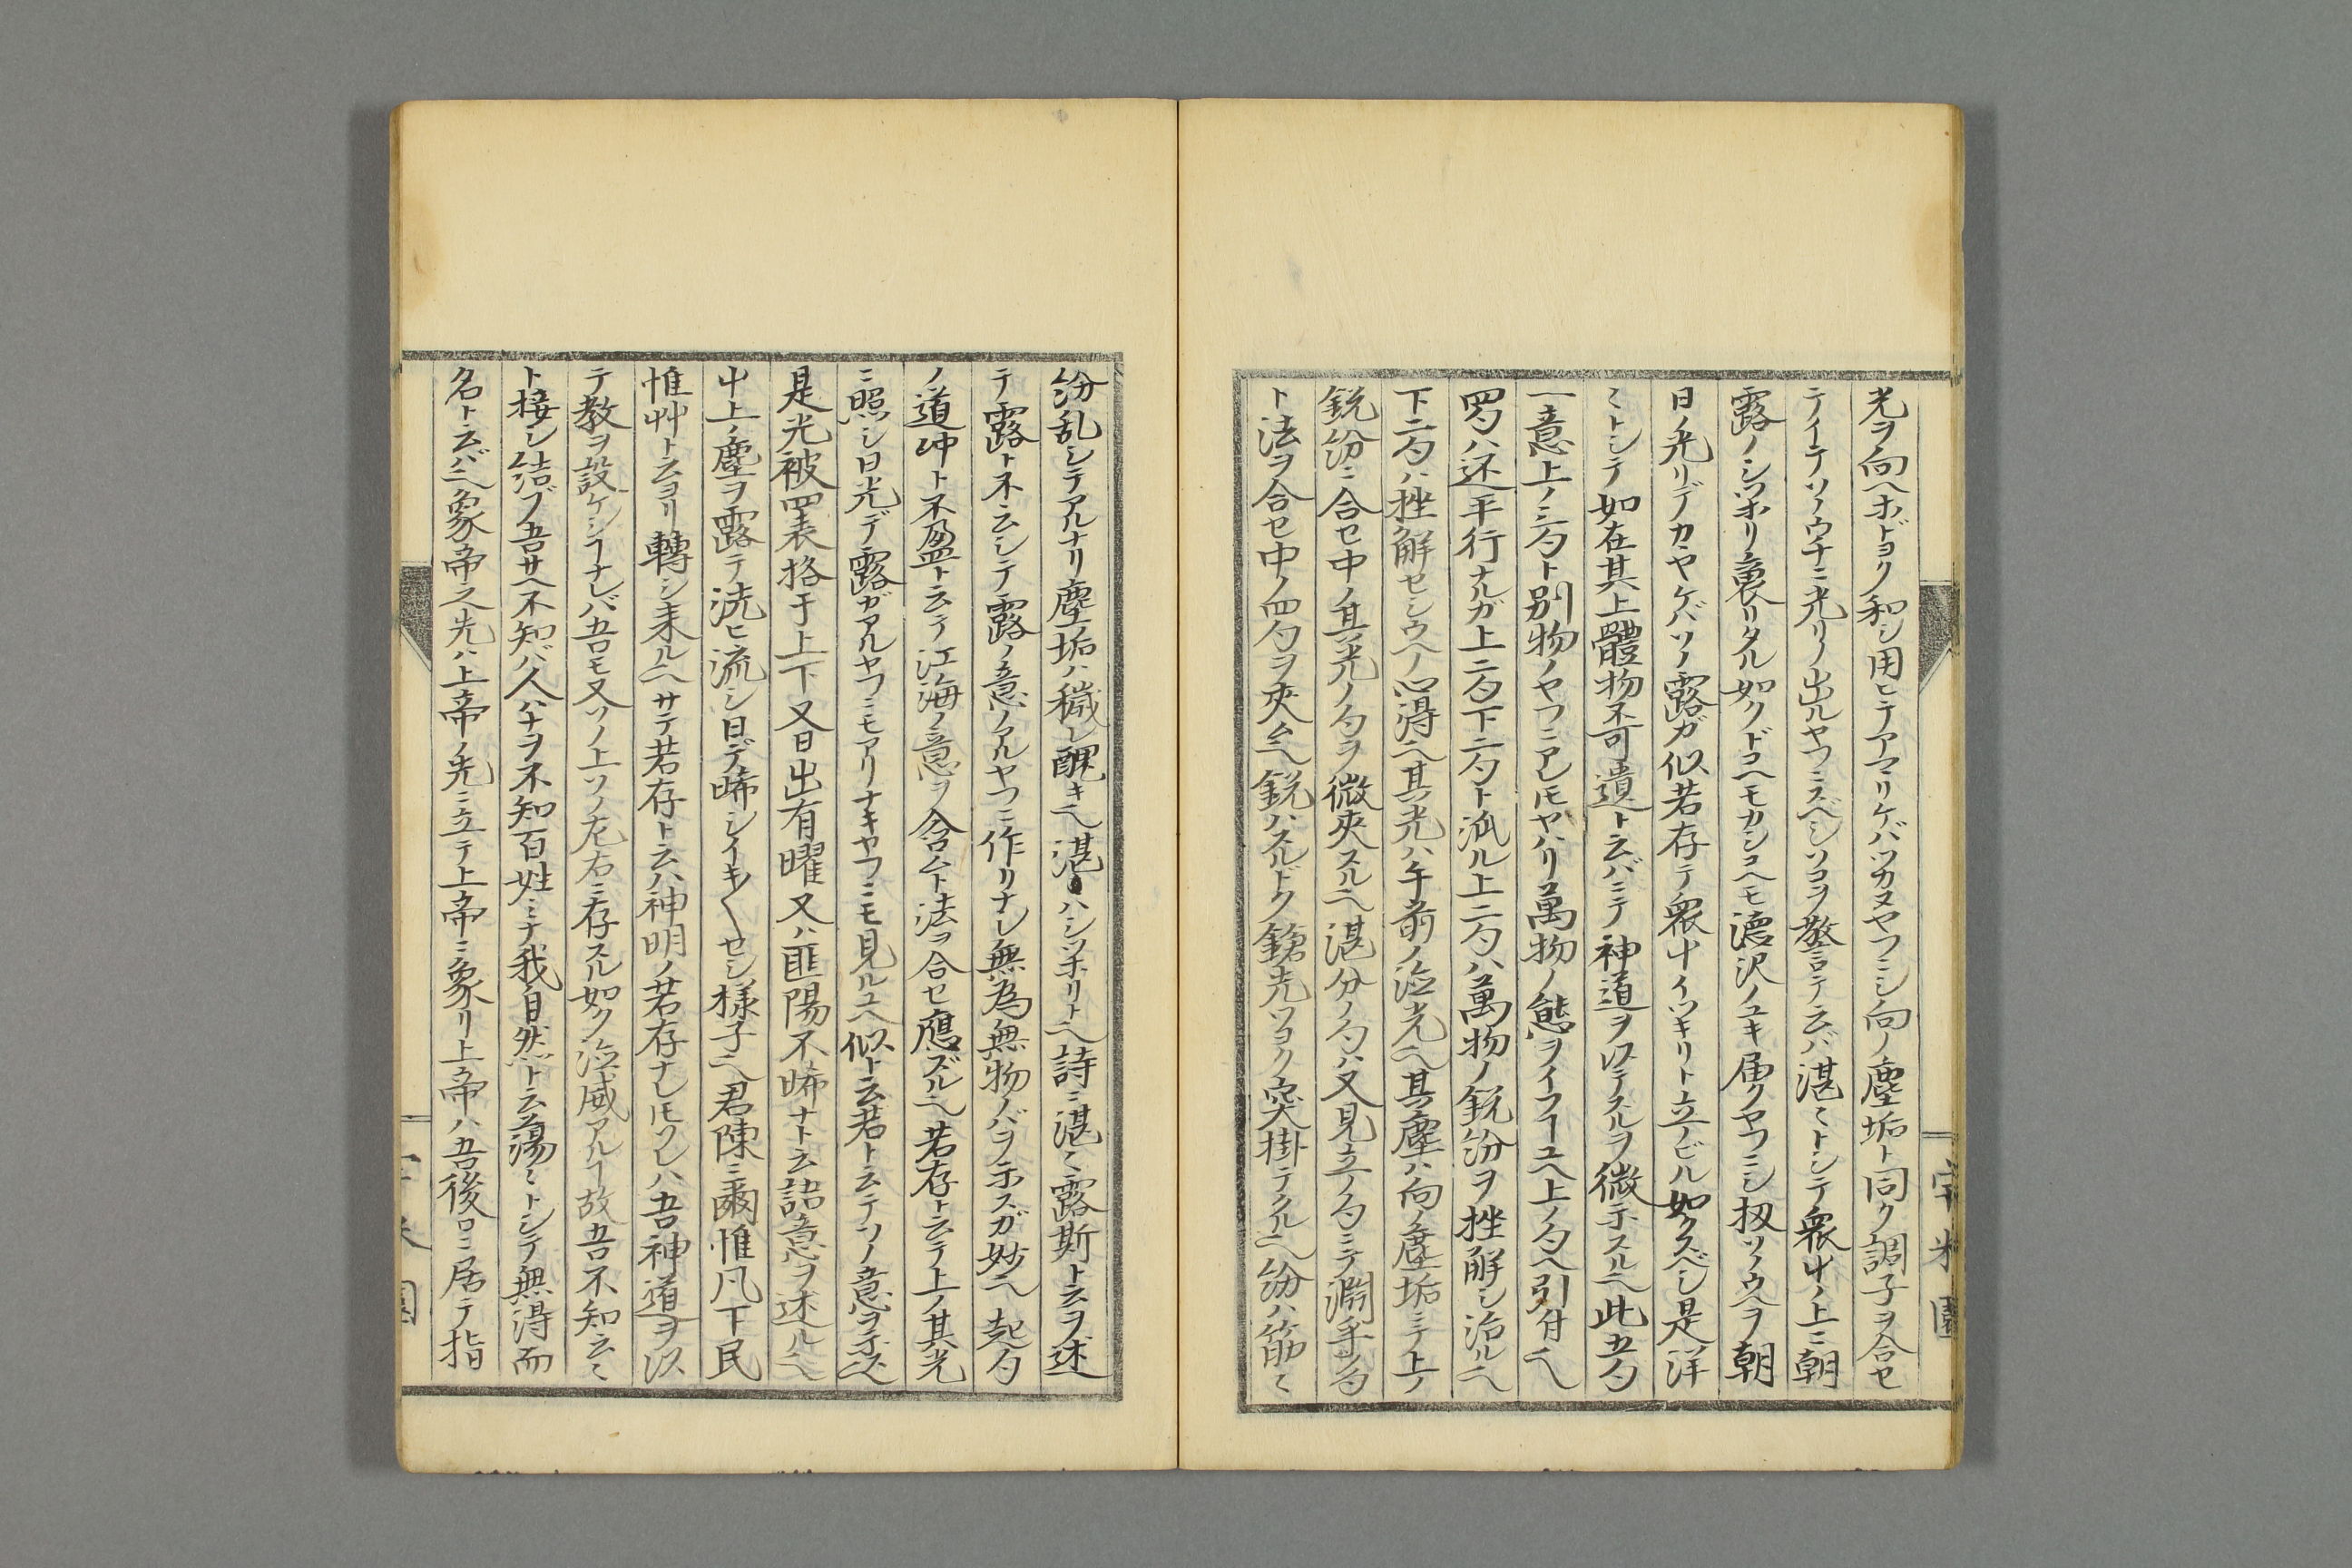 光ヲ向ヘホドヨク和シ用ヒテアマリケバツカヌヤフニシ向ノ塵垢ト同ク調子ヲ合セ
テイテソノウチニ光リノ出ルヤフニスベシソコヲ警テ云バ湛〻トシテ衆屮ノ上ニ朝
露ノシツホリ裛リタル如クドコヘモカシコヘモ徳沢ノユキ届クヤフニシ扨ソノウヘヲ朝
日ノ光リデカヤケバソノ露ガ似若存テ衆屮イツキリト立ノビル如クスベシ是洋
〻トシテ如在其上體物不可遺ト云バニテ神道ヲ以テスルヲ微示スル也此五句
一意上ノ三句ト別物ノヤフニアレ𪜈ヤハリ萬物ノ態ヲイフ𬼀ユヘ上ノ句ヘ引付也
四句ハ还平行ナルガ上二句下二句ト派ル上二句ハ萬物ノ鋭紛ヲ挫解シ治ル也
下二句ハ挫解セシウヘノ心得也其光ハ午前ノ涖光也其塵ハ向ノ塵垢ニテ上ノ
鋭紛ニ合セ中ノ其光ノ句ヲ微夾スル也湛分ノ句ハ又見立ノ句ニテ淵乎句
ト法ヲ合セ中ノ四句ヲ夾ム也鋭ハスルドク鎗先ツヨク突掛テクル也紛ハ筋〻
紛乱シテアルナリ塵垢ハ穢レ醜キ也湛ハシツホリト也詩ニ湛〻露斯ト云ヲ述
テ露ト不云シテ露ノ意ノアルヤフニ作リナシ無為無物ノバヲ示スガ妙也起句
ノ道冲ト不盈ト云テ江海ノ意ヲ含ムト法ヲ合セ應ズル也若存ト云テ上ノ其光
ニ照シ日光デ露ガアルヤフニモアリナキヤフニモ見ルユヘ似ト云若ト云テソノ意ヲ示ス也
是光被四表格于上下又日出有曜又ハ匪陽不晞ナト云詰意ヲ述ル也
屮上ノ塵ヲ露テ洗ヒ流シ日デ晞シイキ〱セシ様子也君陳ニ爾惟凡下民
惟艸ト云ヨリ轉シ来ル也サテ若存ト云ハ神明ノ若存ナレ𪜈ソレハ吾神道ヲ以
テ教ヲ設ケシ𬼀ナレバ吾モ又ソノ上ソノ左右ニ存スル如ク涖威アル𬼀故吾不知云〻
ト接シ結ブ吾サヘ不知バ人ハナヲ不知百姓ミナ我自然ト云蕩〻トシテ無得而
名ト云バ也象帝之先ハ上帝ノ先ニ立テ上帝ニ象リ上帝ハ吾後ロニ居テ指